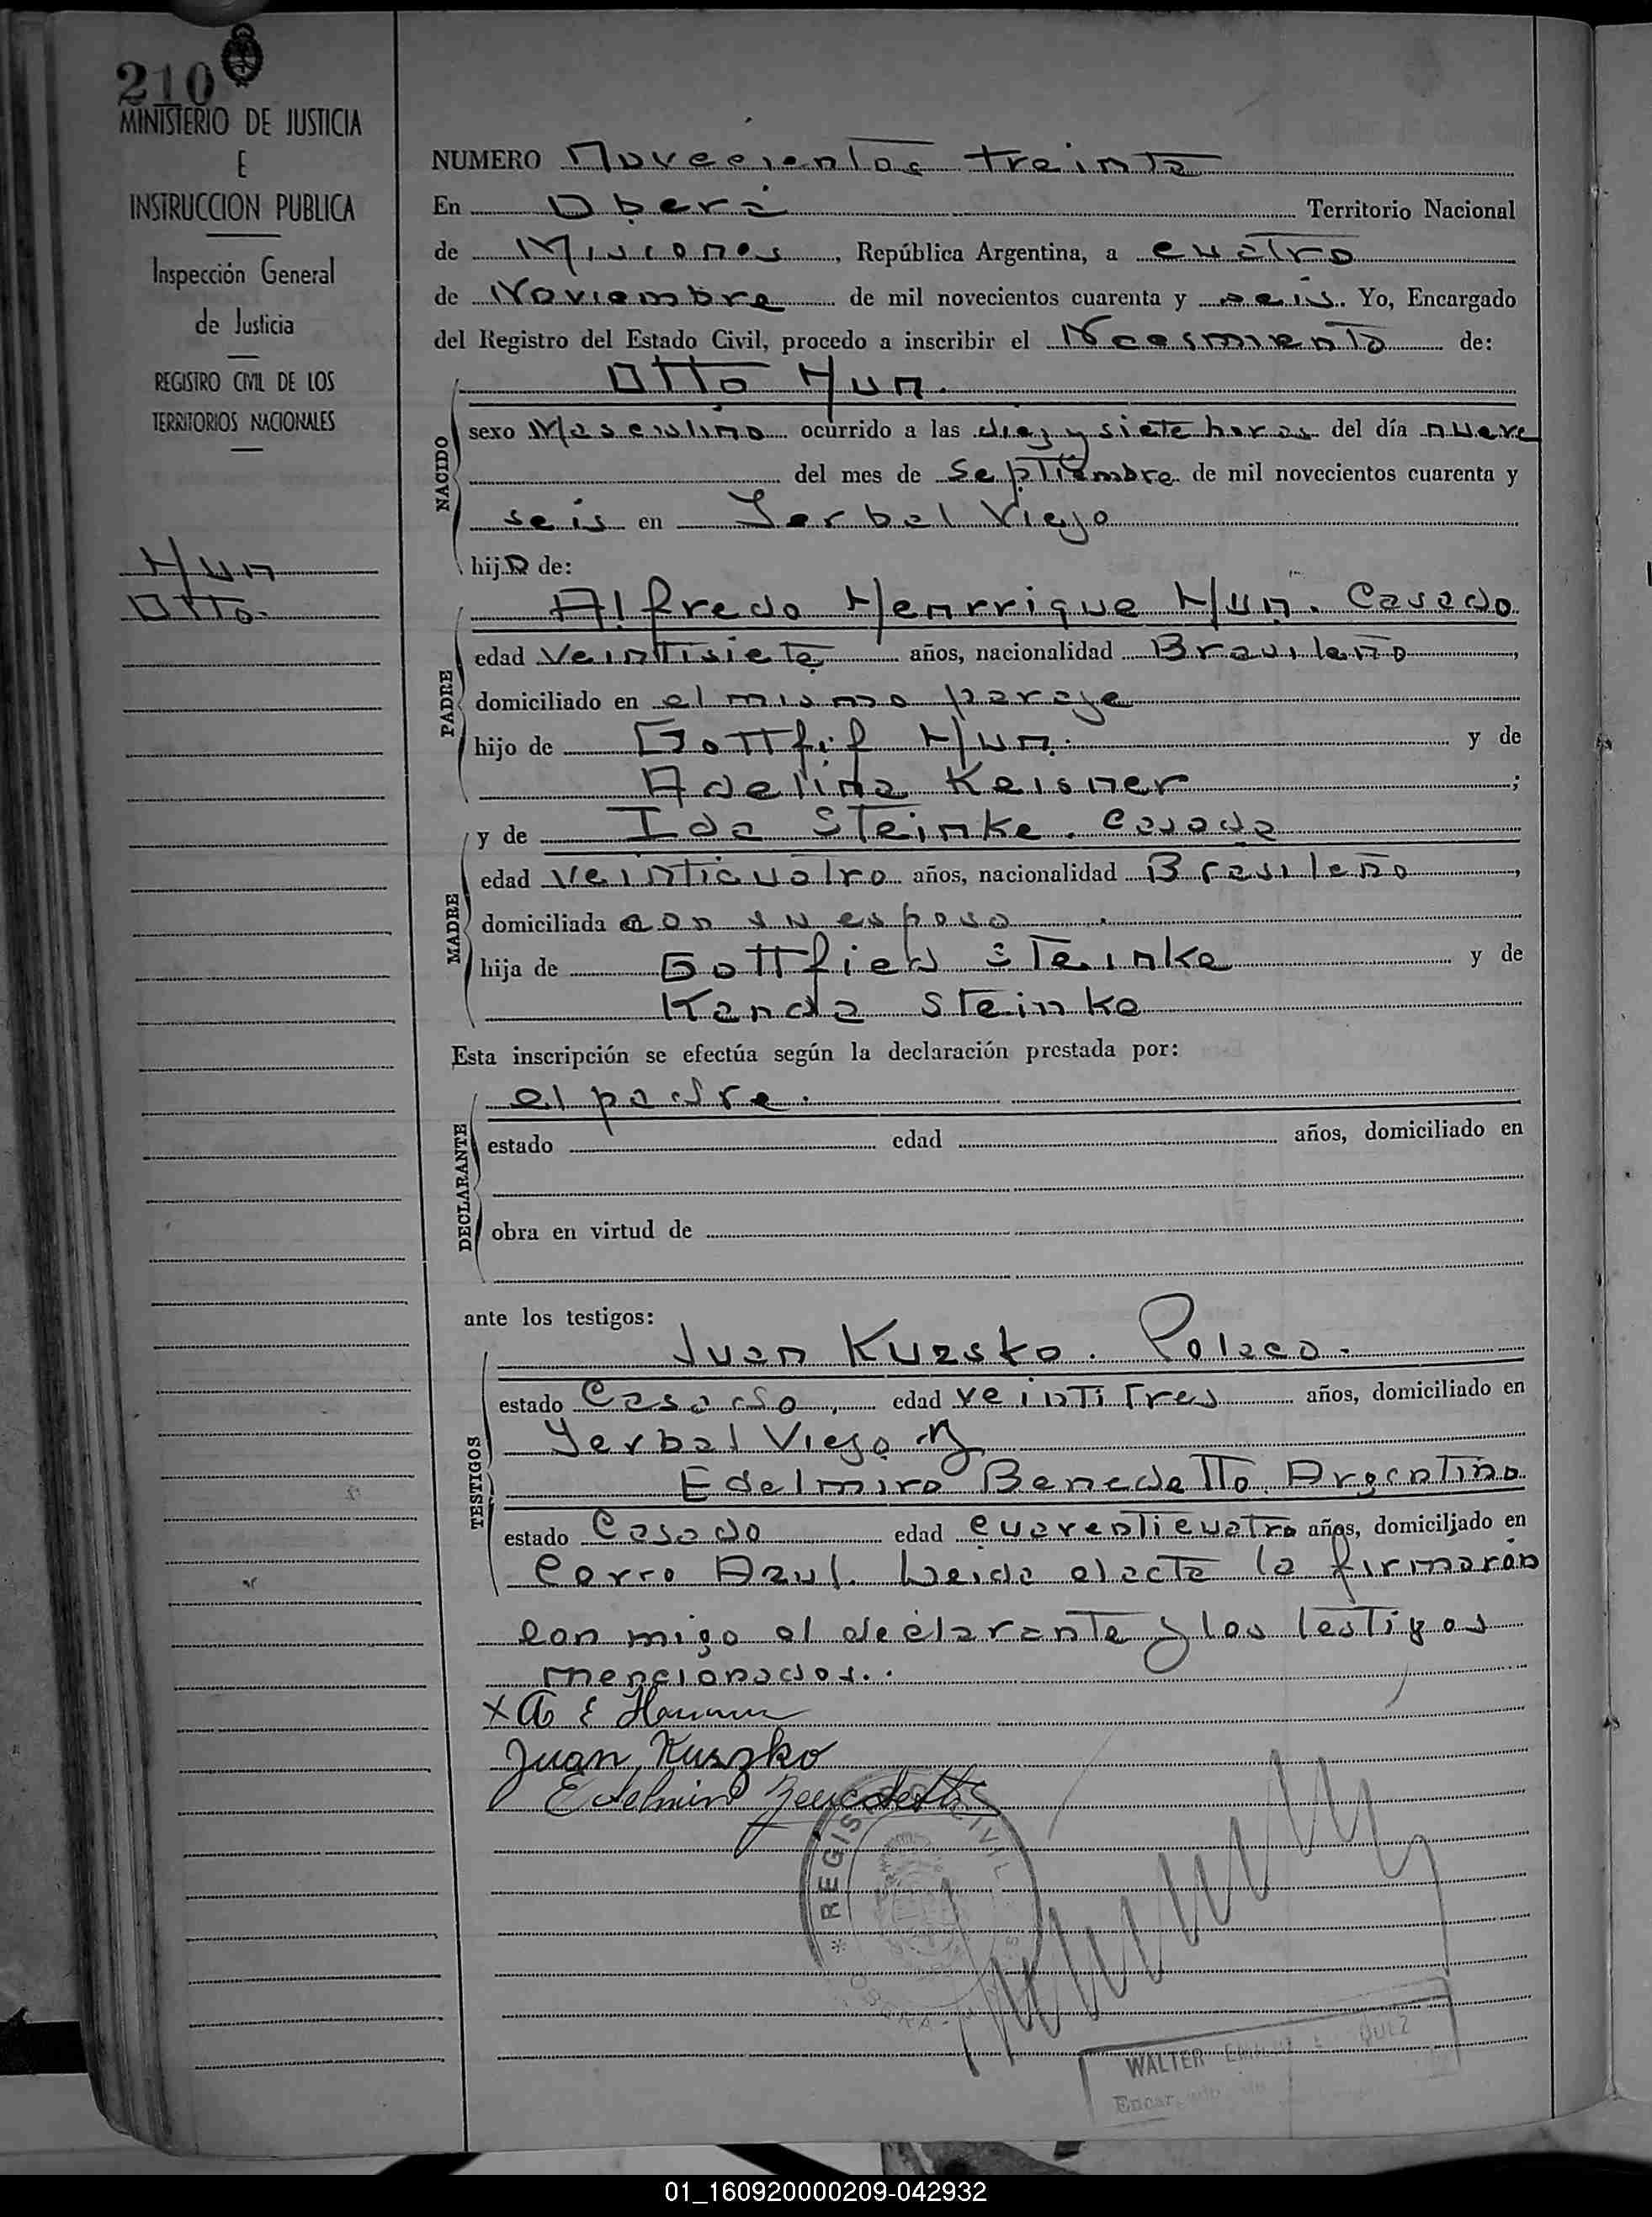 210
MINISTERIO DE JUSTICIA
E
INSTRUCCION PUBLICA
Inspección General
de Justicia
REGISTRO CIVIL DE LOS
TERRITORIOS NACIONALES
Hun
Otto
NUMERO Novecientos treinta
En Oberá Territorio Nacional
de Misiones, República Argentina, a cuatro
de Noviembre de mil novecientos cuarenta y seis. Yo, Encargado
del Registro del Estado Civil, procedo a inscribir el Nacimiento de:
Otto Hun.
NACIDO
sexo Masculino ocurrido a las diez y siete horas del día nueve
del mes de Septiembre de mil novecientos cuarenta y
seis en Yerbal Viejo
hijo de:
PADRE
Alfredo Henrrique Hun. Casado
edad Veintisiete años, nacionalidad Brasileño,
domiciliado en el mismo paraje
hijo de Gottfif Hun. y de
Adelina Keisner;
MADRE
y de Ida Steinke. Casada
edad veinticuatro años, nacionalidad Brasileño,
domiciliada con su esposo
hija de Gottfied Steinke y de
Kanda Steinke
Esta inscripción se efectúa según la declaración prestada por:
DECLARANTE
el padre.
estado edad años, domiciliado en
obra en virtud de
ante los testigos:
TESTIGOS
Juan Kuzsko. Polaco.
estado Casado, edad veintitres años, domiciliado en
Yerbal Viejo y
Edelmiro Benedetto. Argentino
estado Casado edad cuarenticuatro años, domiciliado en
Cerro Azul. Leida elacta la firmarán
conmigo el declarante y los testigos
mencionados..
x A E
Juan Kuszko
Edelmiro Benedetto
REGISTRO CIVIL
WALTER
01_160920000209-042932